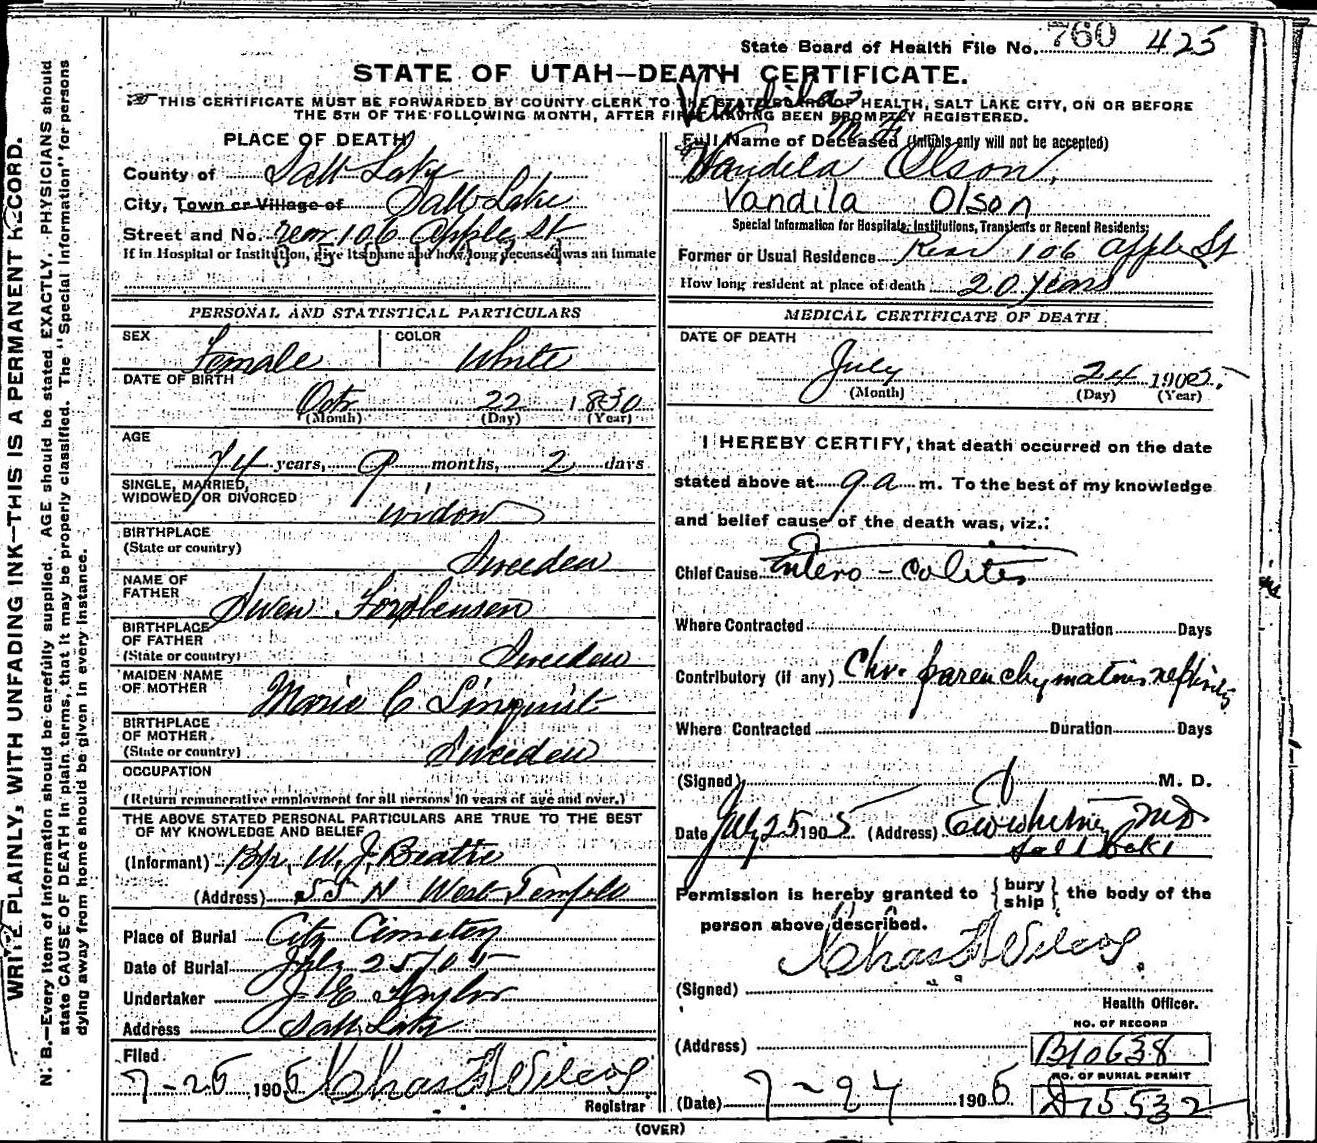 State Board of Health File No. 760 425
STATE OF UTAH—DEATH CERTIFICATE.
THIS CERTIFICATE MUST BE FORWARDED BY COUNTY CLERK TO THE STATE BOARD OF HEALTH, SALT LAKE CITY, ON OR BEFORE
THE 5TH OF THE FOLLOWING MONTH, AFTER FIRST HAVING BEEN PROMPTLY REGISTERED.
WRITE PLAINLY, WITH UNFADING INK—THIS IS A PERMANENT RECORD.
N. B.—Every item of information should be carefully supplied. AGE should be stated EXACTLY. PHYSICIANS should
state CAUSE OF DEATH in plain terms, that it may be properly classified. The "Special Information" for persons
dying away from home should be given in every instance.
PLACE OF DEATH
County of Salt Lake
City, Town or Village of Salt Lake
Street and No. rear 106 Apple St
If in Hospital or Institution, give its name and how long deceased was an inmate
PERSONAL AND STATISTICAL PARTICULARS
SEX Female COLOR White
DATE OF BIRTH
Oct 22 1830
(Month) (Day) (Year)
AGE
74 years, 9 months, 2 days
SINGLE, MARRIED,
WIDOWED, OR DIVORCED
Widow
BIRTHPLACE
(State or country)
Sweeden
NAME OF
FATHER
Swen
BIRTHPLACE
OF FATHER
(State or country)
Sweeden
MAIDEN NAME
OF MOTHER
Marie C Linquist
BIRTHPLACE
OF MOTHER
(State or country)
Sweeden
OCCUPATION
(Return remunerative employment for all persons 10 years of age and over.)
THE ABOVE STATED PERSONAL PARTICULARS ARE TRUE TO THE BEST
OF MY KNOWLEDGE AND BELIEF
(Informant) Bp. W. J. Beatie
(Address) 55 N West Temple
Place of Burial City Cemetery
Date of Burial July 25/05
Undertaker J E Taylor
Address Salt Lake
Filed
7-25 1905 Chas F Wilcox
Registrar
Vandila
Full Name of Deceased (Initials only will not be accepted)
Wandila Olson,
Vandila Olson
Special Information for Hospitals, Institutions, Transients or Recent Residents:
Former or Usual Residence Rear 106 Apple St
How long resident at place of death 20 years
MEDICAL CERTIFICATE OF DEATH
DATE OF DEATH
July 24 1905.
(Month) (Day) (Year)
I HEREBY CERTIFY, that death occurred on the date
stated above at 9 a m. To the best of my knowledge
and belief cause of the death was, viz.:
Chief Cause Entero-Colitis
Where Contracted Duration Days
Contributory (if any) Chr. parenchymatous nephritis
Where Contracted Duration Days
(Signed) M. D.
Date July 25 1905 (Address) Ewwhitney MD
Salt Lake
Permission is hereby granted to {bury ship} the body of the
person above described.
Chas F Wilcox
(Signed)
Health Officer.
NO. OF RECORD
(Address) B10638
NO. OF BURIAL PERMIT
(Date) 7-24 1905 D75532
(OVER)